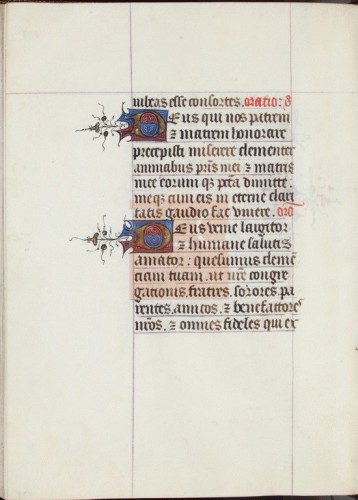 iubeas esse consortes. oratio:
Deus qui nos patrem
⁊ matrem honorare
precepisti miserere clementer
animabus pr̄is mei ⁊ matris
mee eorum qȝ pc̄ta dimitte.
me qȝ cum eis in eterne clari
tatis gaudio fac viuere. orō
Deus venie largitor
⁊ humane salutis
amator : quesumus cleme͂
ciam tuam. ut nr̄e congre
gationis. fratres. sorores. pa
rentes. amicos. ⁊ benefactores
nr̄os. ⁊ omnes fideles qui ex